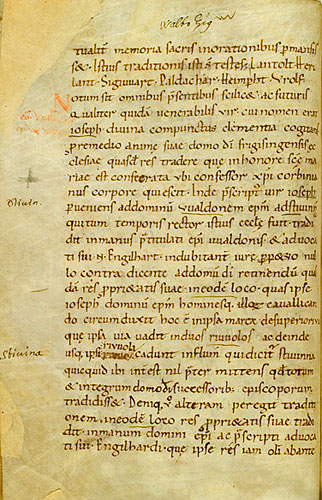 Waltʒ Zig
tualiť memoria sacris inorationibus pmansis
s& · Istius traditionis isti sń testes· Lantolt Heri
lant· Sigiuuart· Paldachar· Heimpht· Vrolf·
Notum sit omnibus psentibus scilic& ac futuris
qualiter quidā uenerabilis uir cui nomen erat
ioseph· diuina compunctus clementia cogitans
premedio animę suae domo dī frigisingensis ec
clesiae quasdā res tradere que inhonore scę ma
riae est consecrata ubi confessor xpi corbinia
nus corpore quiescit· Inde pscriptʼ uir ioseph
perueniens addominū uualdonem epm̄ adstiuinń
quitum temporis rector istius ecclę fuit tradi
dit inmanus ptitulati epi uualdonis & aduoca
ti sui · Engilhart· indubitanť iure ppetuo nul
lo contra dicente addomū dī retinendū qui
dā res pprietatis suae ineodē loco quas ipse
ioseph dominū epm̄ hominesq; illoc cauallican
do circum duxit hoc ē inipsa marca desuperiori
que ipsa uia uadit induos riuulos ac deinde
usq; ipsi riuoli cadunt influuiū qui dicitʼ stiuinna
quicquid ibi int est nil pter mittens qd totum
& integrum domo dī successorib; episcoporum
tradidiss& · Deniq; alteram peregit traditi
onem ineodē loco res pprietatis suae tradi
dit inmanum domini epi ac pscripti aduoca
ti sui · Engilhardi· que ipse res iam olī abante
Stiuin.
Stiuina